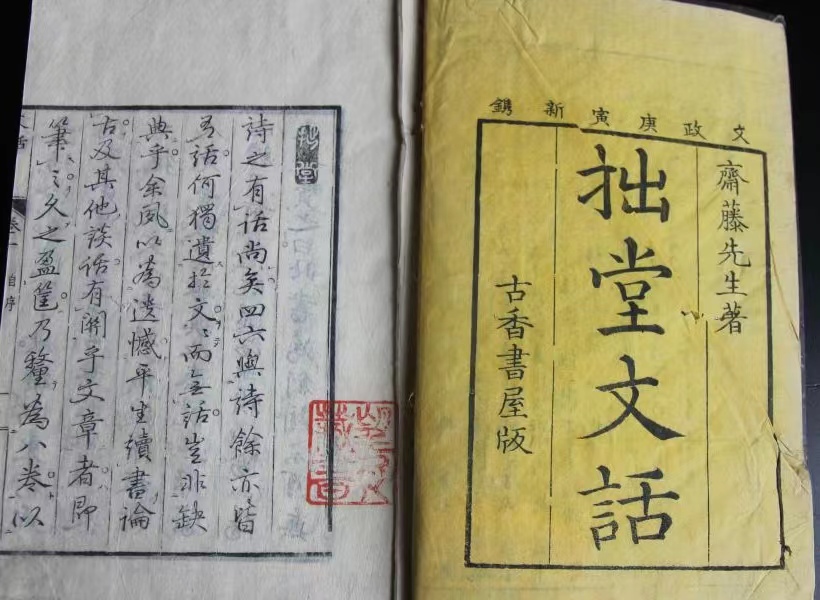 文政庚寅新鐫
齋藤先生著
拙堂文話
古香書屋版
詩之有話尚矣四六與詩餘亦皆
有話何獨遺於文〻而無話豈非缺
典乎余夙以為遺憾平生讀書論
古及其他談話有關乎文章者即
筆之久之盈筐乃釐為八卷以
自序